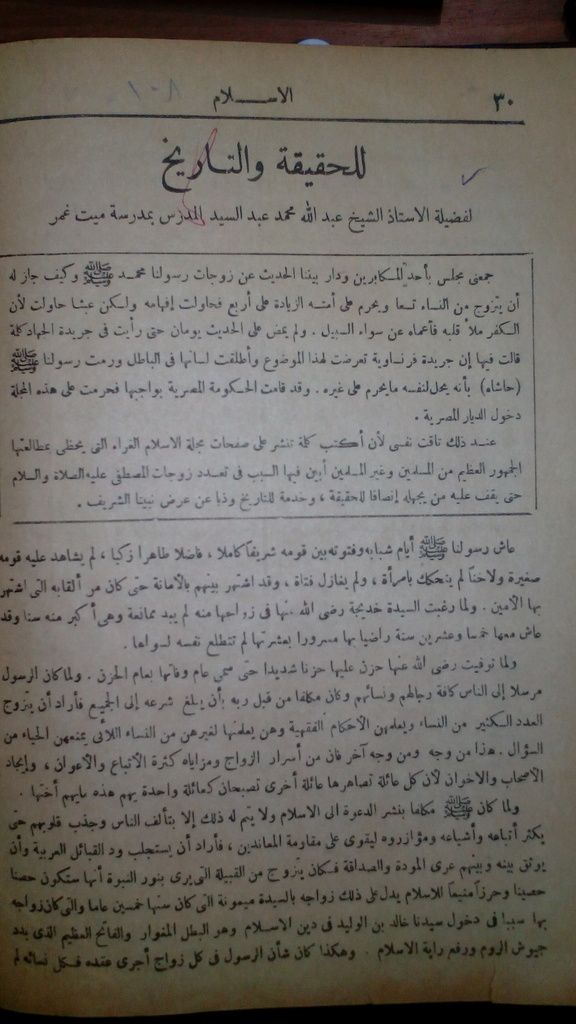 ٣٠
الاســـلام
١٠٨
للحقيقة والتـاريخ
لفضيلة الاستاذ الشيخ عبد الله محمد عبد السيد المدرس بمدرسة ميت غمر
جمعنى مجلس بأحد المـكابرين ودار بيننا الحديث عن زوجات رسولنا محمـد ﷺ وكيف جاز له
أن يتزوج من النساء تسعا ويحرم على أمتـه الزيادة على أربع فحاولت إفهامه ولـكن عبثا حاولت لأن
الـكفر ملأ قلبه فأعماه عن سواء السبيل . ولم يمض على الحديث يومان حتى رأيت فى جريدة الجهاد كلة
قالت فيها إن جريدة فرنساوية تعرضت لهذا الموضوع وأطلقت لسانها فى الباطل ورمت رسولنا ﷺ
(حاشاه) بأنه يحل لنفسه ما يحرم على غيره . وقد قامت الحـكومة المصرية بواجبها فحرمت على هذه المجلة
دخول الديار المصرية .
عنـد ذلك تاقت نفسى لأن أكتب كلة تنشر على صفحات مجلة الاسلام الغراء التى يحظى بمطالعتها
الجمهور العظيم من المسلمين وغير المسلمين أبين فيها السبب فى تعـدد زوجات المصطفى عليه الصلاة والسلام
حتى يقف عليه من يجهله إنصافا للحقيقة ، وخدمة للتاريخ وذبا عن عرض نبينا الشريف .
عاش رسولنا ﷺ أيام شبابه وفتوته بين قومه شريفا كاملا ، فاضلا طاهرا زكيا ، لم يشاهد عليه قومه
صغيرة ولاخنا لم يتحكك بامرأة ، ولم يغازل فتاة ، وقد اشتهر بينهم بالأمانة حتى كان من ألقابه التى اشتهر
بها الأمين . ولما رغبت السيدة خديجة رضى الله عنها فى زواجها منه لم يبد ممانعة وهى أكبر منه سنا وقد
عاش معها خمسا وعشرين سنة راضيا بها مسرورا بعشرتها لم تتطلع نفسه لسواها .
ولما توفيت رضى الله عنها حزن عليها حزنا شديدا حتى سمى عام وفاتها بعام الحزن . ولما كان الرسول
مرسلا إلى الناس كافة رجالهم ونسائهم وكان مكلفا من قبل ربه بأن يبلغ شرعه إلى الجميع فأراد أن يتزوج
العدد الـكثير من النساء ويعلمهن الأحكام الفقهية وهن يعلمنها لغيرهن من النساء اللائى يمنعهن الحياء من
السؤال . هذا من وجه ومن وجه آخر فان من أسرار الزواج ومزاياه كثرة الأتباع والأعوان ، وإيجاد
الأصحاب والاخوان لأن كل عائلة تصاهرها عائلة أخرى تصبحان كعائلة واحدة يهم هذه مايهم أختها .
ولما كان ﷺ مكلفا بنشر الدعوة الى الاسلام ولا يتم له ذلك إلا بتألف الناس وجذب قلوبهم حتى
يكثر أتباعه وأشياعه ومؤازروه ليقوى على مقاومة المعاندين ، فأراد أن يستجلب ود القبائل العربية وأن
يوثق بينه وبينهم عرى المودة والصداقة فكان يتزوج من القبيلة التى يرى بنور النبوة أنها ستكون حصنا
حصينا وحرزا منيعا للاسلام يدل على ذلك زواجه بالسيدة ميمونة التى كان سنها خمسين عاما والتى كان زواجه
بها سببا فى دخول سيدنا خالد بن الوليد فى دين الاسـلام وهو البطل المغوار والفاتح العظيم الذى بدد
جيوش الروم ورفع راية الاسلام . وهكذا كان شأن الرسول فى كل زواج أجرى عقده فـكل نسائه لم